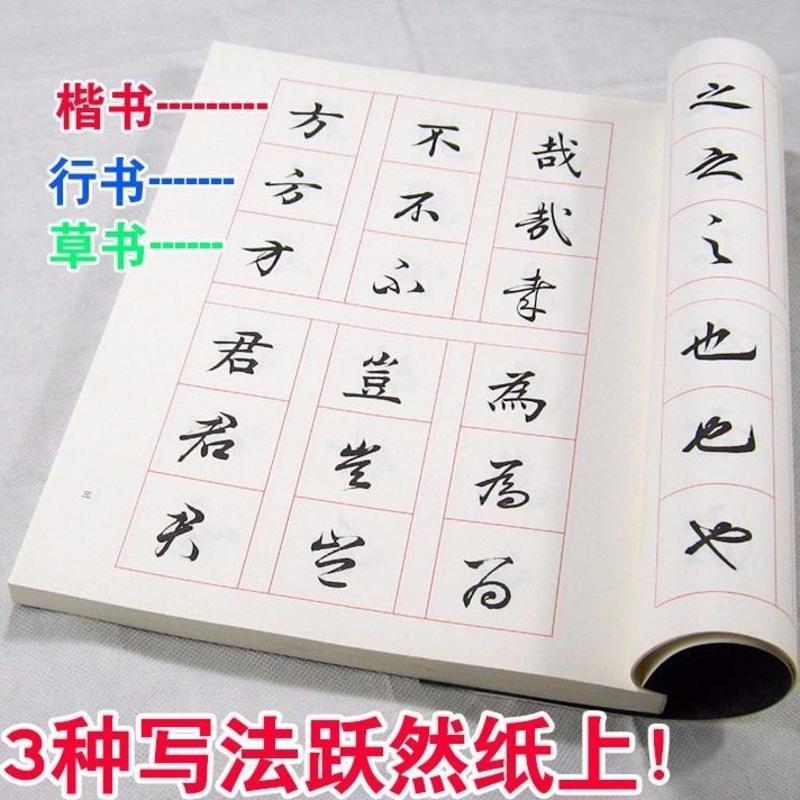 楷书---------
行书-------
草书------
之之之
也也也
哉哉哉
不不不
方方方
為為為
豈豈豈
君君君
三
3种写法跃然纸上!